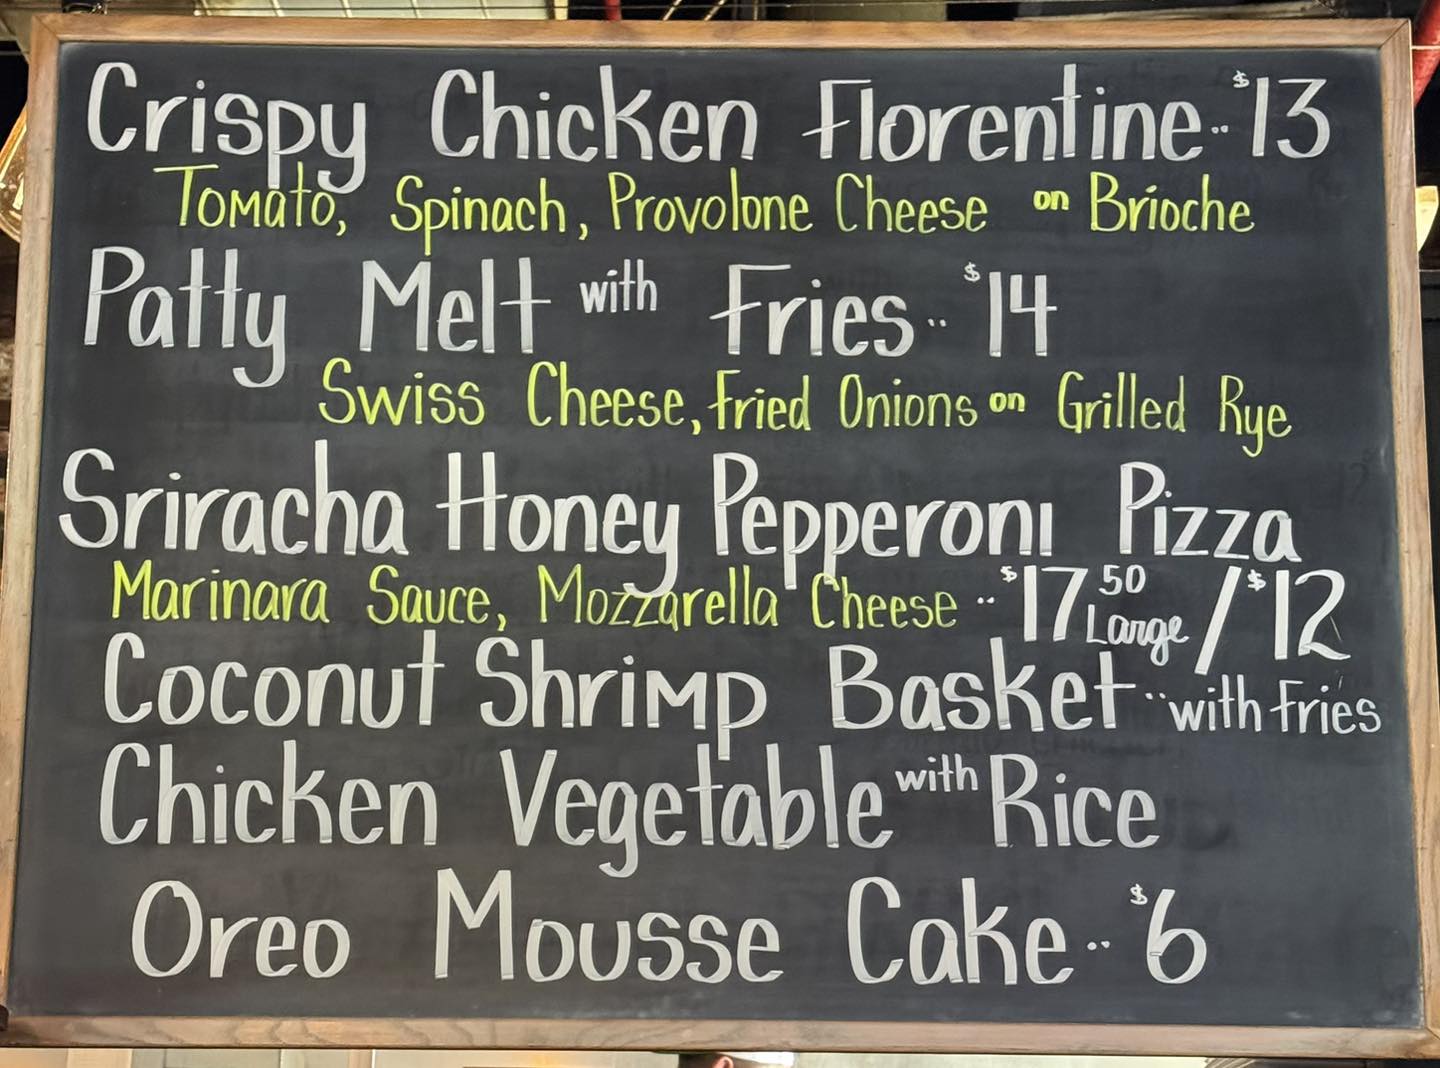 Crispy Chicken Florentine.. $13
Tomato, Spinach, Provolone Cheese on Brioche
Patty Melt with Fries.. $14
Swiss Cheese, Fried Onions on Grilled Rye
Sriracha Honey Pepperoni Pizza
Marinara Sauce, Mozzarella Cheese.. $17 50 Large / $12
Coconut Shrimp Basket.. with Fries
Chicken Vegetable with Rice
Oreo Mousse Cake.. $6